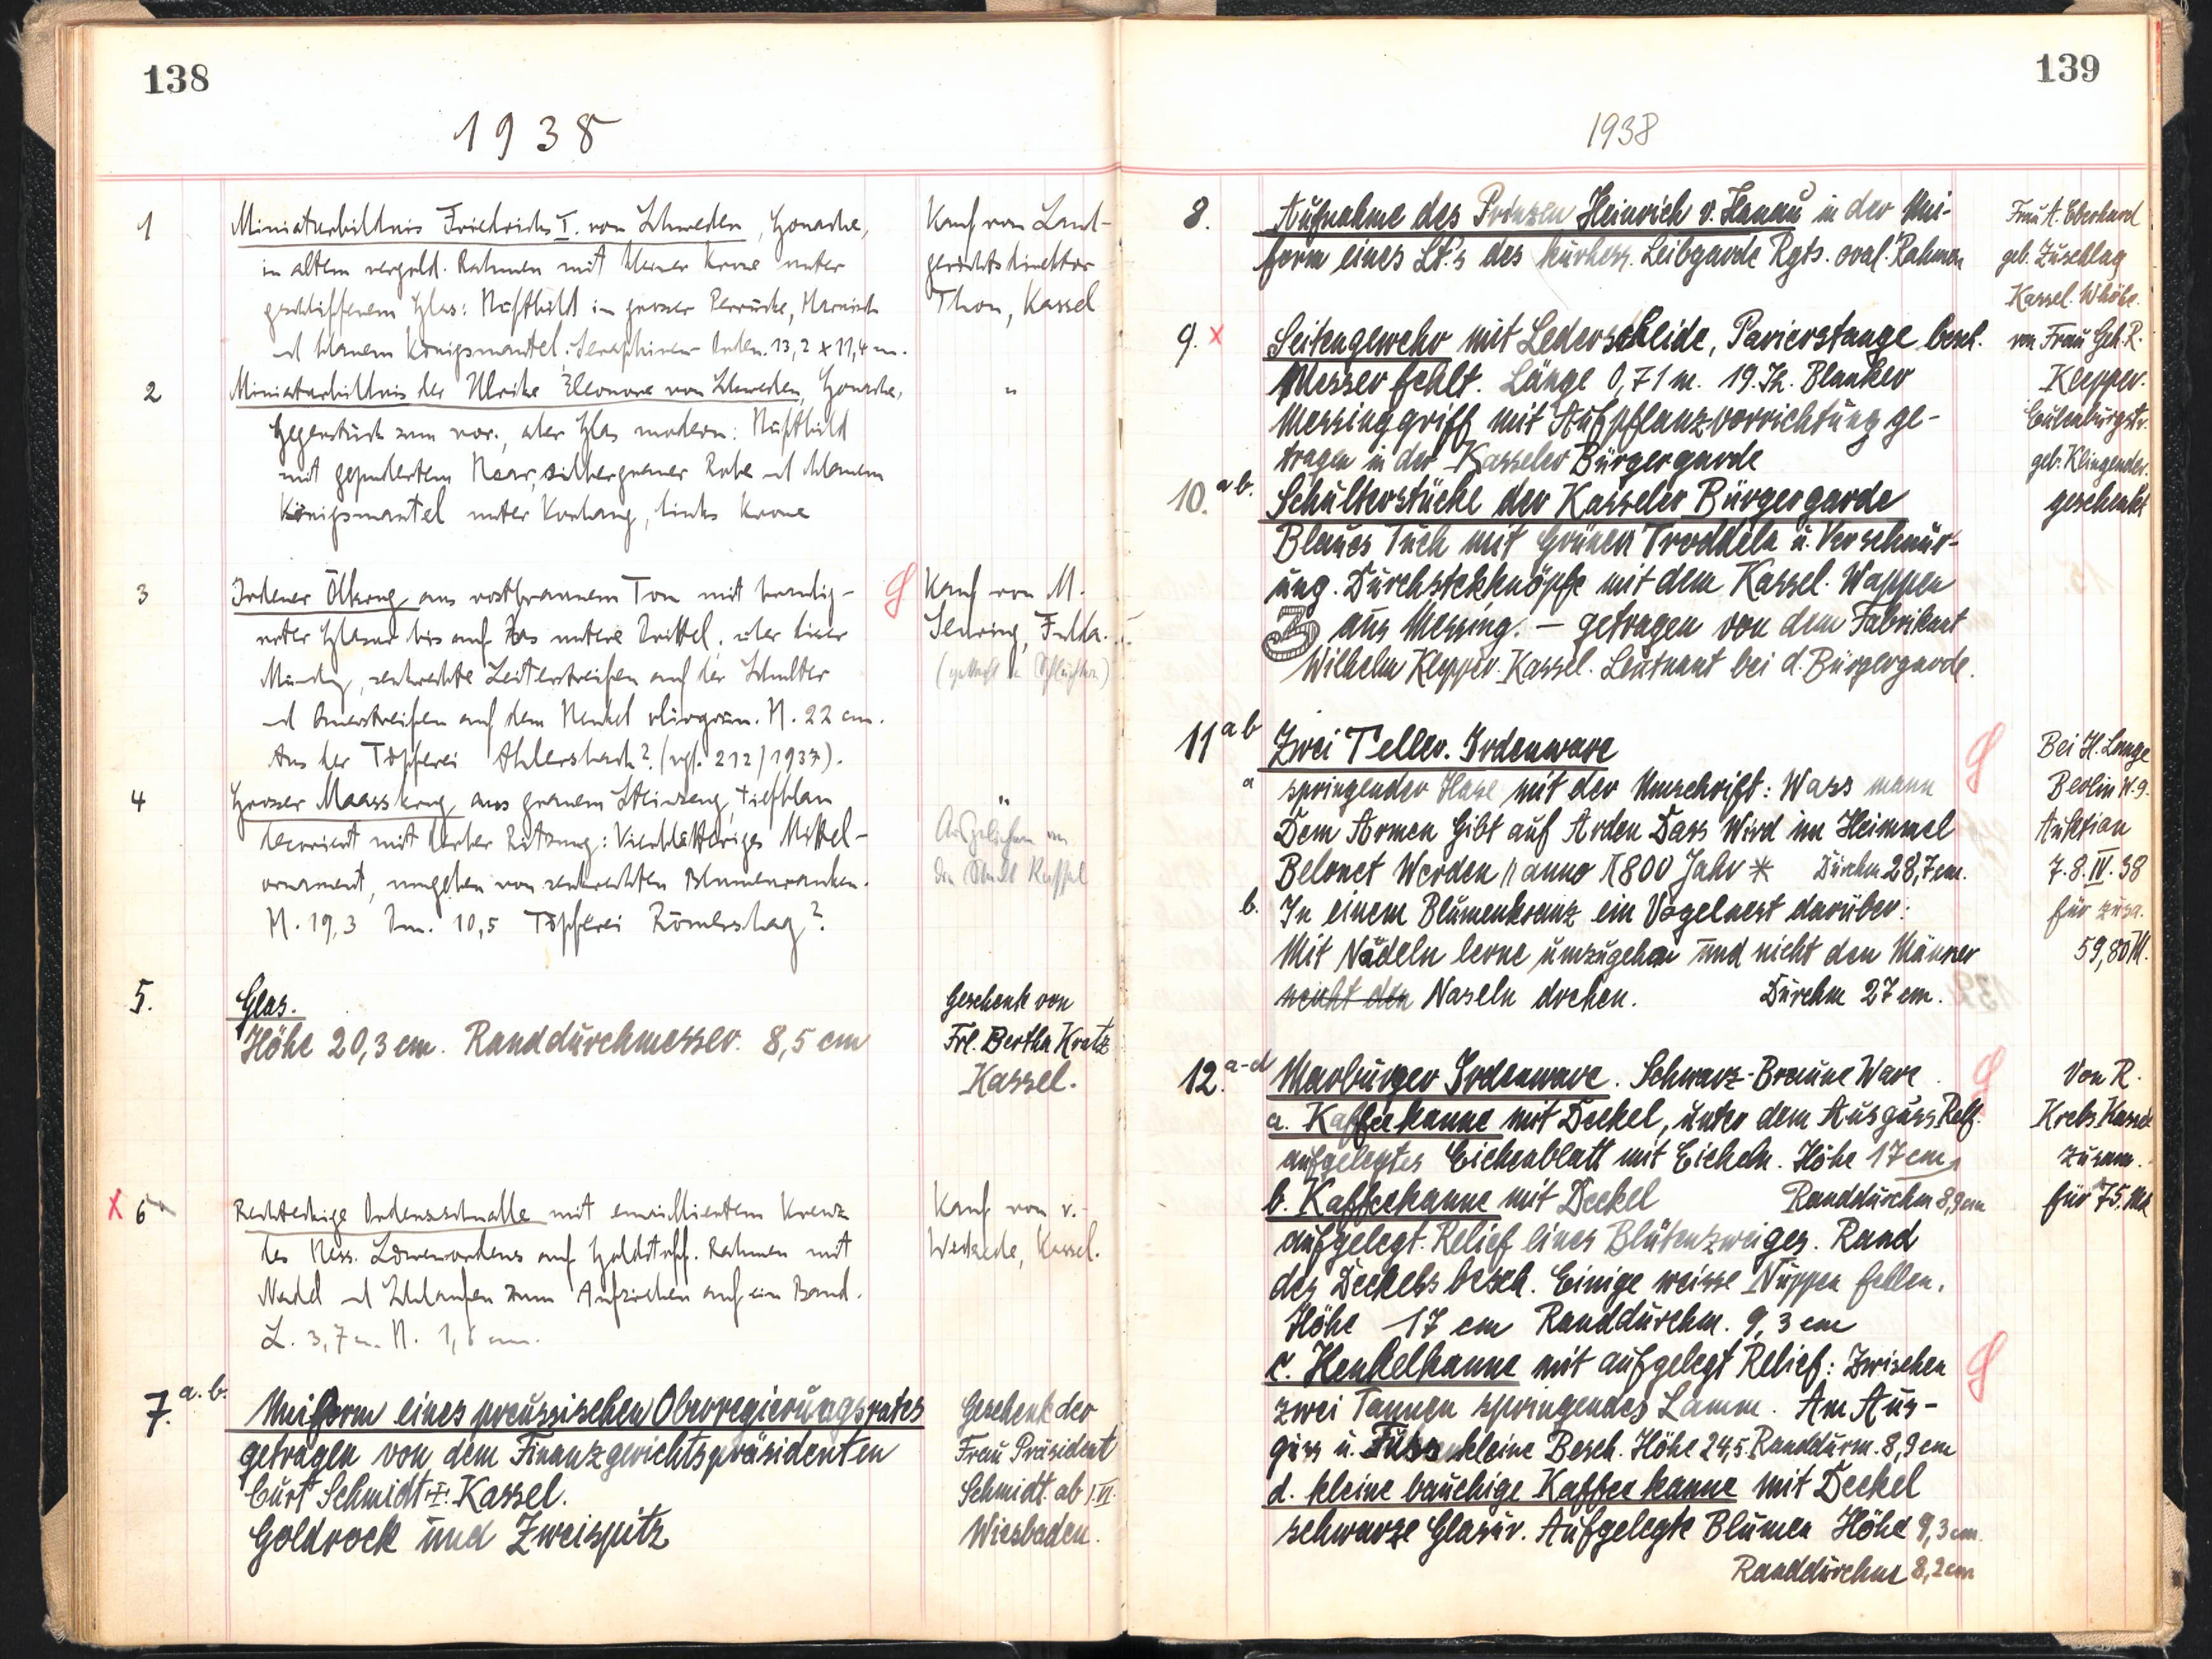 138
1938
1
Miniaturbildnis Friedrichs I. von Schweden, Gouache,
Kauf von Land-
in altem vergold. Rahmen mit kleiner Krone unter
gerichtsdirektor
geschliffenem Glas: Brustbild in grosser Perrücke, Harnisch
Thon, Kassel
und blauem Königsmantel. Seraphinen-Orden. 13,2 x 11,4 cm.
2
Miniaturbildnis der Ulrike Eleonore von Schweden, Gouache,
"
Gegenstück zum vor., aber Glas modern: Brustbild
mit gepudertem Haar, silbergrauer Robe und blauem
Königsmantel unter Vorhang, links Krone
3
Irdener Ölkrug aus rostbraunem Ton mit
Kauf von M.
roter Glasur bis auf das untere Drittel, über dieser
Fulda.
senkrechte Leiterstreifen auf der Schulter
und Querstreifen auf dem Henkel olivgrün. H. 22 cm.
Aus der Töpferei Ahlersbach? (vgl. 212/1937).
4
Grosser Maasskrug aus grauem Steinzeug, tiefblau
"
decoriert mit derber Ritzung: Vierblättriges Mittel-
ornament, umgeben von senkrechten Blumenranken.
der Stadt Kassel
H. 19,3 Dm. 10,5 Töpferei Römershag?
5.
Glas.
Geschenk von
Höhe 20,3 cm. Randdurchmesser. 8,5 cm
Frl. Bertha Kratz
Kassel.
x 6
Rechteckige Ordensschnalle mit emailliertem Kreuz
Kauf von v.
des Hess. Löwenordens auf Goldstoff. Rahmen mit
Wedrede, Kassel.
Nadel und Schlaufen zum Aufziehen auf ein Band.
L. 3,7 cm. H. 1,8 cm.
7. a. b.
Uniform eines preussischen Oberregierungsrates
Geschenk der
getragen von dem Finanzgerichtspräsidenten
Frau Präsident
Curt Schmidt † Kassel.
Schmidt. ab 1.VI.
Goldrock und Zweispitz
Wiesbaden.
139
1938
8.
Aufnahme des Prinzen Heinrich v. Hanau in der Uni-
Frau A. Eberhard
form eines Lt's des kurhess. Leibgarde Rgts. oval. Rahmen
geb. Zuschlag
Kassel. Whöhe.
9. x
Seitengewehr mit Lederscheide, Parierstange besch.
von Frau Geh. R.
Messer fehlt. Länge 0,71 m. 19. Jh. Blanker
Klepper.
Messinggriff mit Aufpflanzvorrichtung ge-
Eulenburgstr.
tragen in der Kasseler Bürgergarde
geb. Klingender.
10. a b.
Schulterstücke der Kasseler Bürgergarde
geschenkt
Blaues Tuch mit Grünen Troddeln u. Verschnür-
ung. Durchsteckknöpfe mit dem Kassel. Wappen
3 aus Messing. – getragen von dem Fabrikant
Wilhelm Klepper. Kassel. Leutnant bei d. Bürgergarde.
11 a b
Zwei Teller. Irdenware
Bei H. Lange
a
springender Hase mit der Umschrift: Wass mann
Berlin W. 9.
Dem Armen Gibt auf Arden Dass Wird im Heimmel
Auktion
Belonet Werden // anno 1800 Jahr * Durchm 28,7 cm.
7. 8. IV. 38
b.
In einem Blumenkranz ein Vogelnest darüber:
für zusa.
Mit Nadeln lerne umzugehen und nicht den Männer
59,80 M.
nicht den Naseln drehen. Durchm 27 cm.
12. a-d
Marburger Irdenware. Schwarz-Braune Ware
Von R.
a. Kaffeekanne mit Deckel, unter dem Ausguss Relf.
Krebs Kassel
aufgelegtes Eichenblatt mit Eicheln. Höhe 17 cm,
zusam.
b. Kaffeekanne mit Deckel Randdurchm 8,9 cm
für 75. Mk
aufgelegt. Relief eines Blütenzweiges. Rand
des Deckels besch. Einige weisse Nuppen fehlen.
Höhe 17 cm Randdurchm. 9,3 cm
c. Henkelkanne mit aufgelegt Relief: Zwischen
zwei Tannen springendes Lamm. Am Aus-
guss u. Fuss kleine Besch. Höhe 24,5. Randdurm. 8,9 cm
d. kleine bauchige Kaffee kanne mit Deckel
schwarze Glasur. Aufgelegte Blumen Höhe 9,3 cm.
Randdurchm 8,2 cm